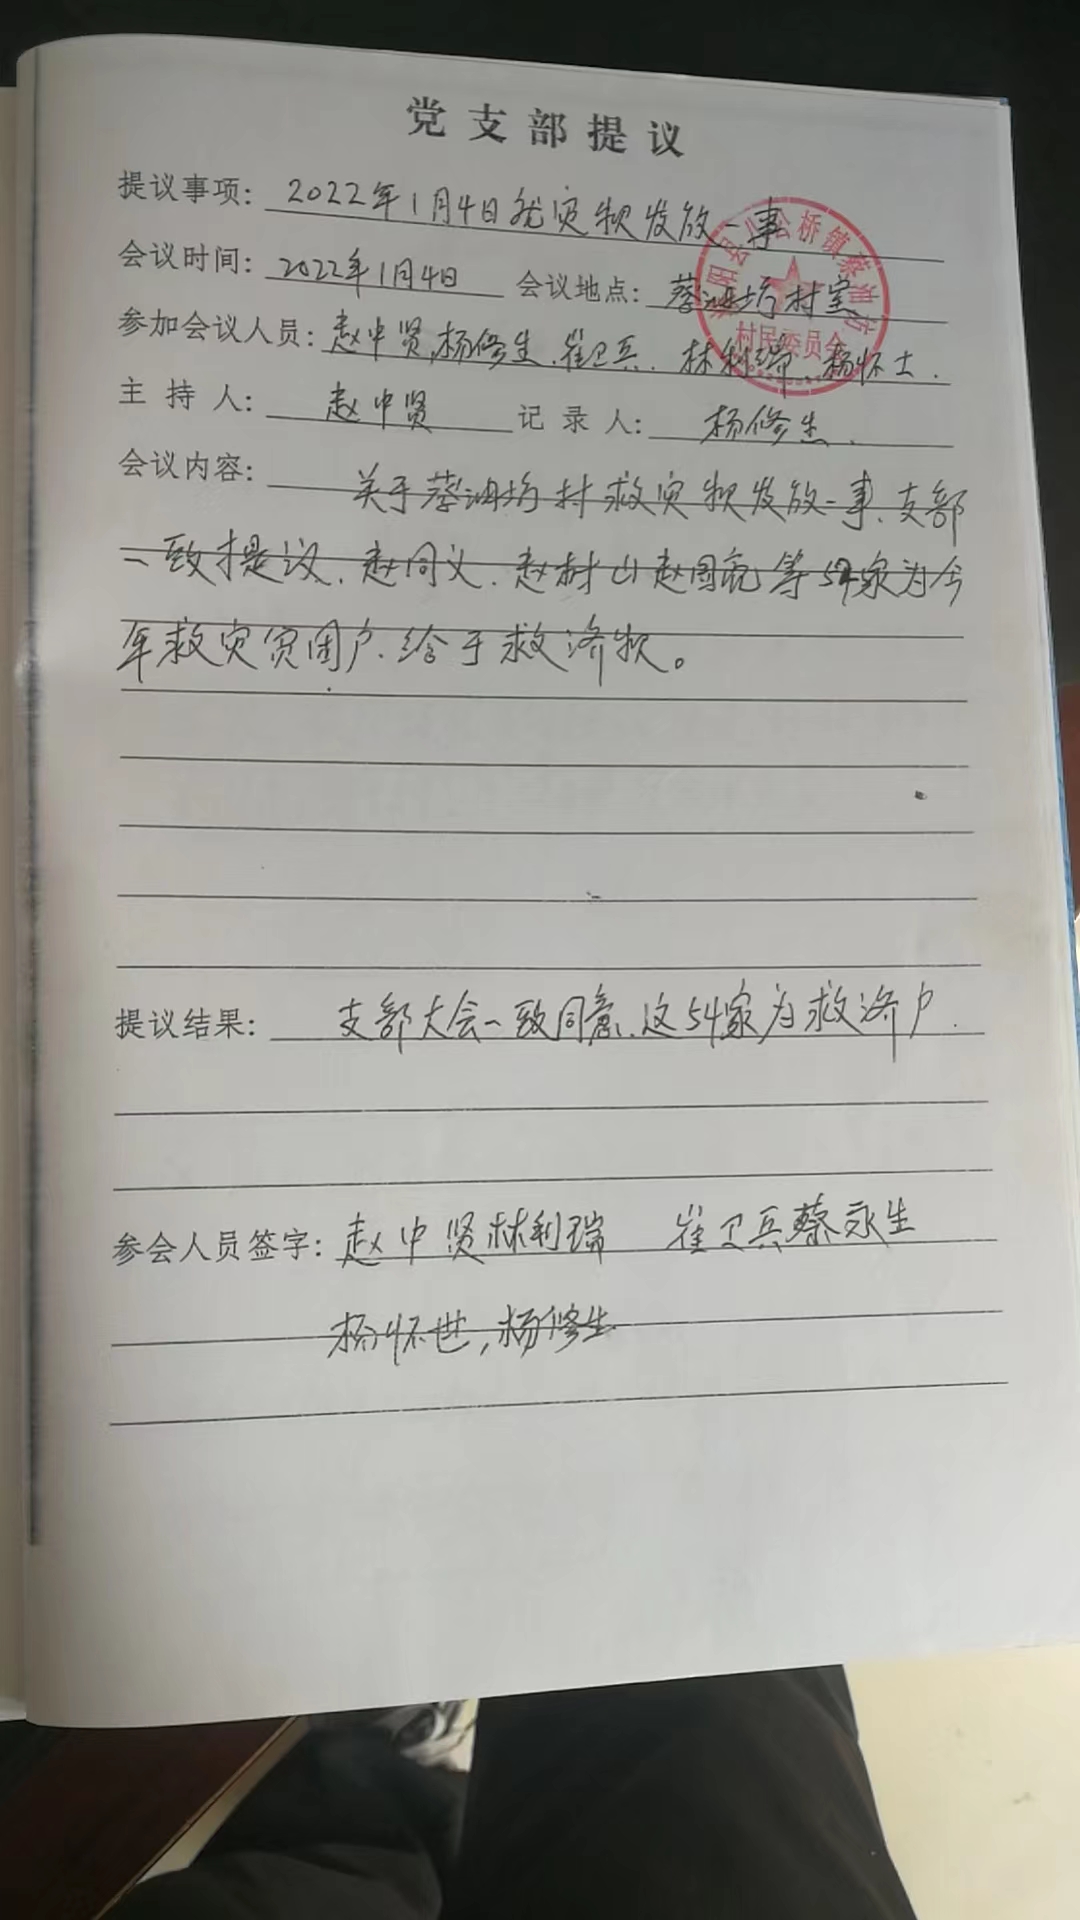 党支部提议
提议事项: 2022年1月4日就灾款发放一事
会议时间: 2022年1月4日 会议地点: 蔡油坊村室
参加会议人员: 赵中贤,杨修生、崔卫兵、林利瑞、杨怀士.
主持人: 赵中贤 记录人: 杨修生、
会议内容: 关于蔡油坊村救灾款发放一事、支部
一致提议、赵同义、赵树山赵国乾等54家为今
年救灾贫困户、给于救济款。
提议结果: 支部大会一致同意、这54家为救济户.
参会人员签字: 赵中贤林利瑞 崔卫兵蔡永生
杨怀世,杨修生
公桥镇蔡油坊
村民委员会